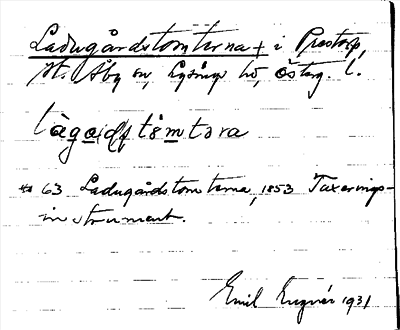 Ladugårdstomterna + i Prestorp,
St. Åby sn, Lysings hd, Österg. l.
làgaɩdståmtəra
63 Ladugårdstomterna, 1853 Taxerings-
instrument.
Emil 1931